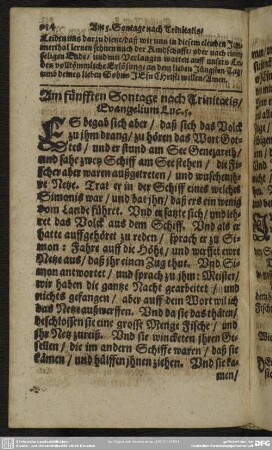 Am 5. Sontage nach Trinitatis/
Leiden uns darzu dienẽ/ daß wir uns in diesem elenden Jam-
merthal lernen sehnen nach der Kindschafft/ oder nach einem
seligen Ende/ und mit Verlangen warten auff unsers Lei-
bes vollkömmliche Erlösunge an dem lieben Jüngsten Tag/
umb deines lieben Sohns JEsu Christi willen/ Amen.
Am fünfften Sontage nach Trinitatis/
Evangelium Luc. 5.
ES begab sich aber/ daß sich das Volck
zu jhm drang/ zu hören das Wort Got-
tes/ und er stund am See Genezareth/
und sahe zwey Schiff am See stehen/ die Fi-
scher aber waren außgetreten/ und wuschen jh-
re Netze. Trat er in der Schiff eines welches
Simonis war/ und bat jhn/ daß ers ein wenig
vom Lande führet. Und er satzte sich/ und leh-
ret das Volck aus dem Schiff. Und als er
hatte auffgehöret zu reden/ sprach er zu Si-
mon: Fahre auff die Höhe/ und werffet ewre
Netze aus/ daß jhr einen Zug thut. Und Si-
mon antwortet/ und sprach zu jhm: Meister/
wir haben die gantze Nacht gearbeitet/ und
nichts gefangen/ aber auff dein Wort wil ich
das Netz außwerffen. Und da sie das thäten/
beschlossen sie eine grosse Menge Fische/ und
jhr Netz zureiß. Und sie wincketen jhren Ge-
sellen/ die im andern Schiffe waren/ daß sie
kämen/ und hülffen jhnen ziehen. Und sie ka-
men/